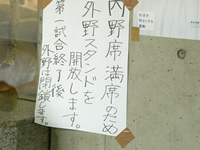 内野席満席のため
外野スタンドを
開放します。
第一試合終了後
外野は閉鎖します。